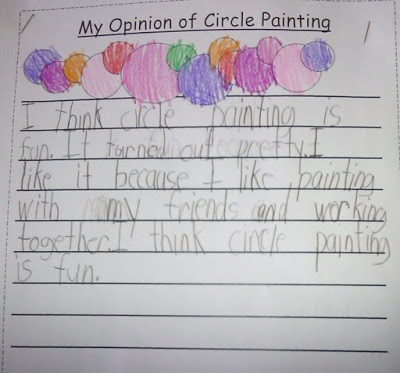 My Opinion of Circle Painting
I think circle painting is
fun. It turned out pretty. I
like it because I like painting
with my friends and working
together. I think circle painting
is fun.